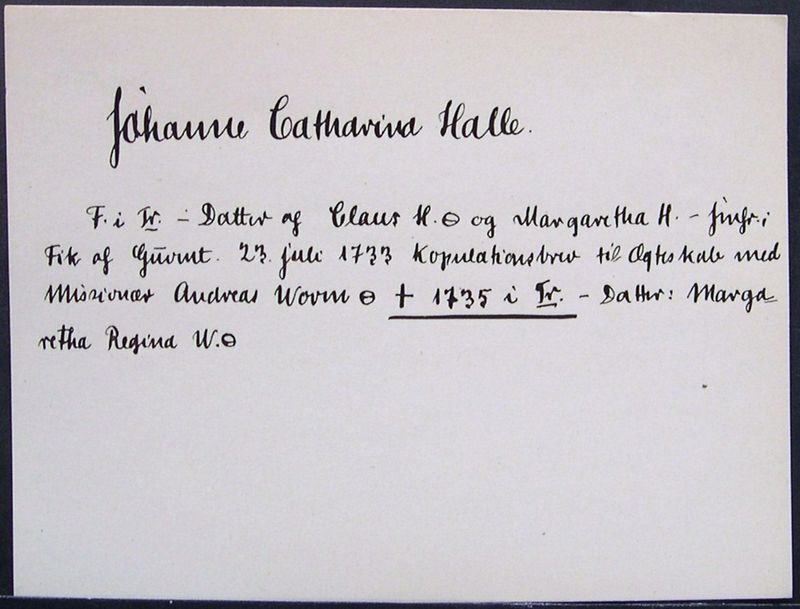 Johanne Catharina Halle.
F. i Tr. - Datter af Claus H. ⊖ og Margaretha H. - Jmfr. i
Fik af Guvmt. 23. juli 1733 Kopulationsbrev til Ægteskab med
Missionær Andreas Worm ⊖ † 1735 i Tr. - Datter: Marga-
retha Regina W. ⊖